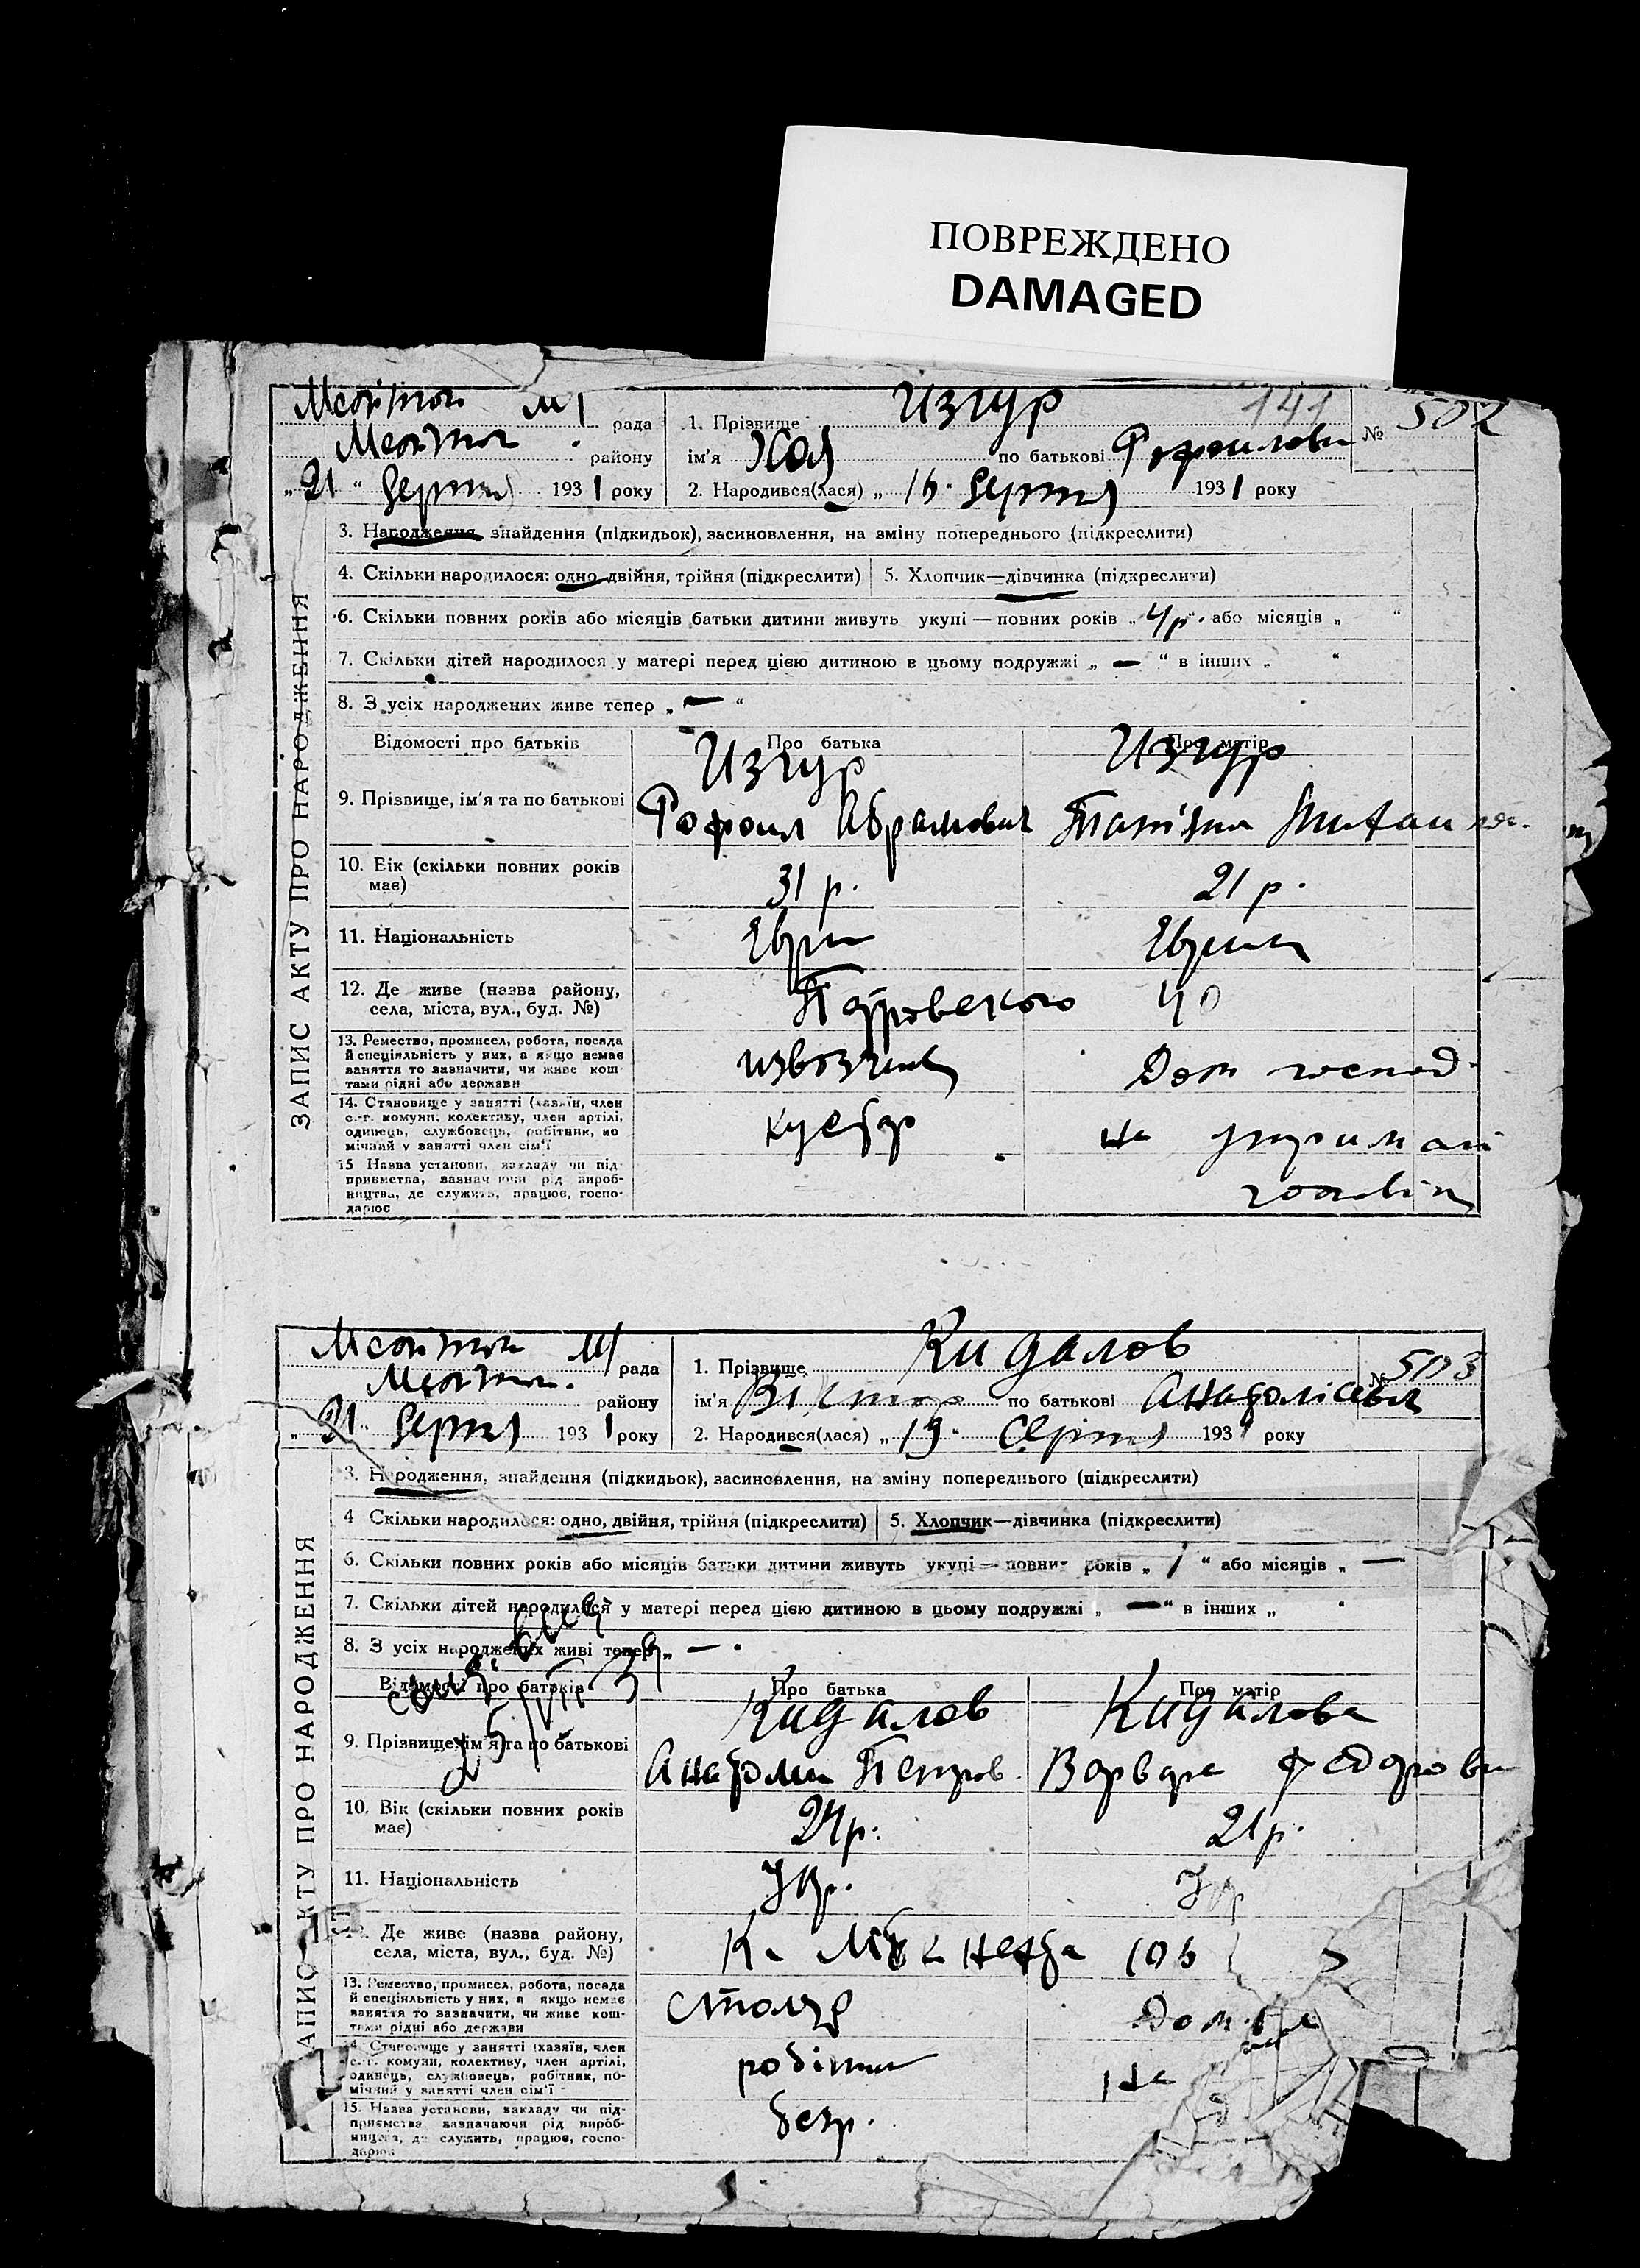 ПОВРЕЖДЕНО
DAMAGED
141
рада
1. Прізвище Изгур
№ 502
району
ім'я Хая по батькові Рофоиловн
„ 21 “ Серпня 1931 року
2. Народився(лася) „ 16 “ Серпня 1931 року
ЗАПИС АКТУ ПРО НАРОДЖЕННЯ
3. Народження, знайдення (підкидьок), засиновлення, на зміну попереднього (підкреслити)
4. Скільки народилося: одно, двійня, трійня (підкреслити) 5. Хлопчик—дівчинка (підкреслити)
6. Скільки повних років або місяців батьки дитини живуть укупі — повних років „ 4 р. “ або місяців „ “
7. Скільки дітей народилося у матері перед цією дитиною в цьому подружжі „ — “ в інших „ “
8. З усіх народжених живе тепер „ — “
Відомості про батьків Про батька Про матір
Изгур Изгур
9. Прізвище, ім'я та по батькові Рофоил Абрамович Татяна
10. Вік (скільки повних років має) 31 р. 21 р.
11. Національність Евреи Евреика
12. Де живе (назва району, села, міста, вул., буд. №) Петровского 40
13. Ремество, промисел, робота, посада й спеціяльність у них, а якщо немає заняття то зазначити, чи живе коштами рідні або держави извозчик Дом господ.
14. Становище у занятті (хазяїн, член с.-г. комуни, колективу, член артілі, одинець, службовець, робітник, помічний у занятті член сім'ї кустар на утриман
15 Назва установи, закладу чи підприємства, зазначаючи рід виробництва, де служить, працює, господарює
рада
1. Прізвище Кидалов
№ 503
району
ім'я Віктор по батькові Анатолієвич
„ 21 “ Серпня 1931 року
2. Народився(лася) „ 19 “ Серпня 1931 року
ЗАПИС АКТУ ПРО НАРОДЖЕННЯ
3. Народження, знайдення (підкидьок), засиновлення, на зміну попереднього (підкреслити)
4 Скільки народилося: одно, двійня, трійня (підкреслити) 5. Хлопчик—дівчинка (підкреслити)
6. Скільки повних років або місяців батьки дитини живуть укупі — повних років „ 1 “ або місяців „ — “
7. Скільки дітей народилося у матері перед цією дитиною в цьому подружжі „ — “ в інших „ “
8. З усіх народжених живі тепер „ — “
25/VII 39
Відомості про батьків Про батька Про матір
Кидалов Кидалова
9. Прізвище, ім'я та по батькові Анатоли Петров. Варвара Федоровн
10. Вік (скільки повних років має) 24 р. 21 р.
11. Національність Укр. Укр
12. Де живе (назва району, села, міста, вул., буд. №) К. Лібкнехта 105
13. Ремество, промисел, робота, посада й спеціяльність у них, а якщо немає заняття то зазначити, чи живе коштами рідні або держави столяр Дом.
14. Становище у занятті (хазяїн, член с.-г. комуни, колективу, член артілі, одинець, службовець, робітник, помічний у занятті член сім'ї робітник на
15. Назва установи, закладу чи підприємства зазначаючи рід виробництва, де служить, працює, господарює безр.